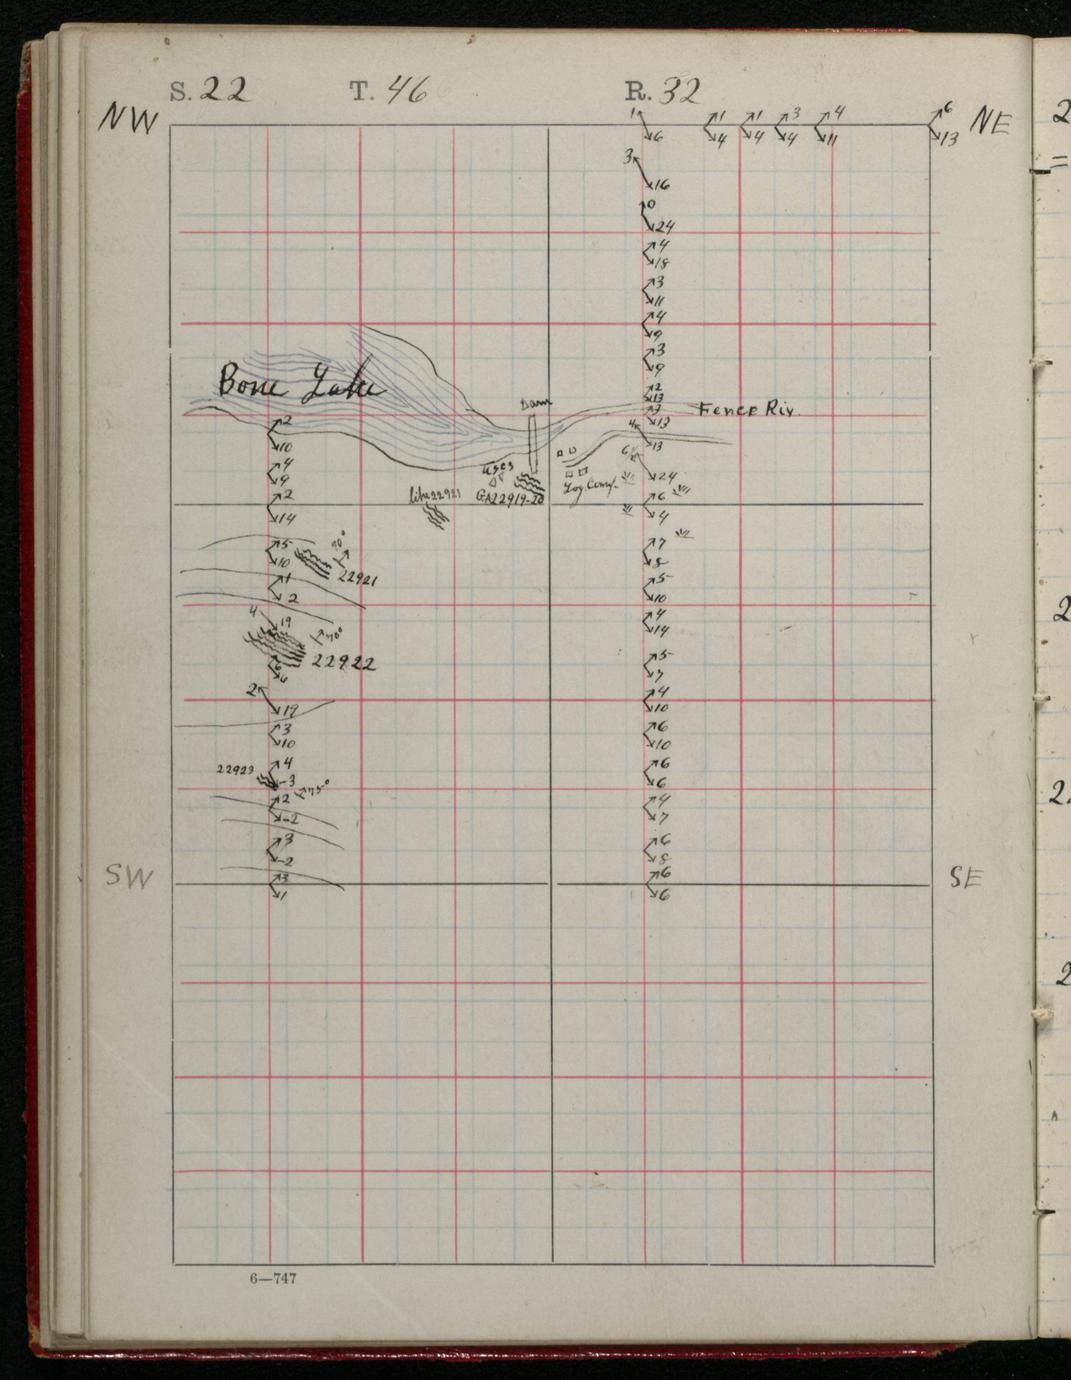 S. 22 T. 46 R. 32
NW NE
1 1 1 3 4 6
6 4 4 4 11 13
3
16
0
24
4
18
3
11
4
9
3
9
2
13
Bone Lake
Dam
3
Fence Riv.
2
4
13
10
13
4
6
9
uses
24
2
Log Camp
like 22921
G22919-20
6
14
4
5
70°
7
10
22921
8
1
5
2
10
4
4
19
70°
14
22922
5
6
7
2
4
19
10
3
6
10
10
4
6
22923
3
75°
6
2
4
2
7
3
6
2
8
SW SE
3
6
1
6
6—747
2
=
2
2
2